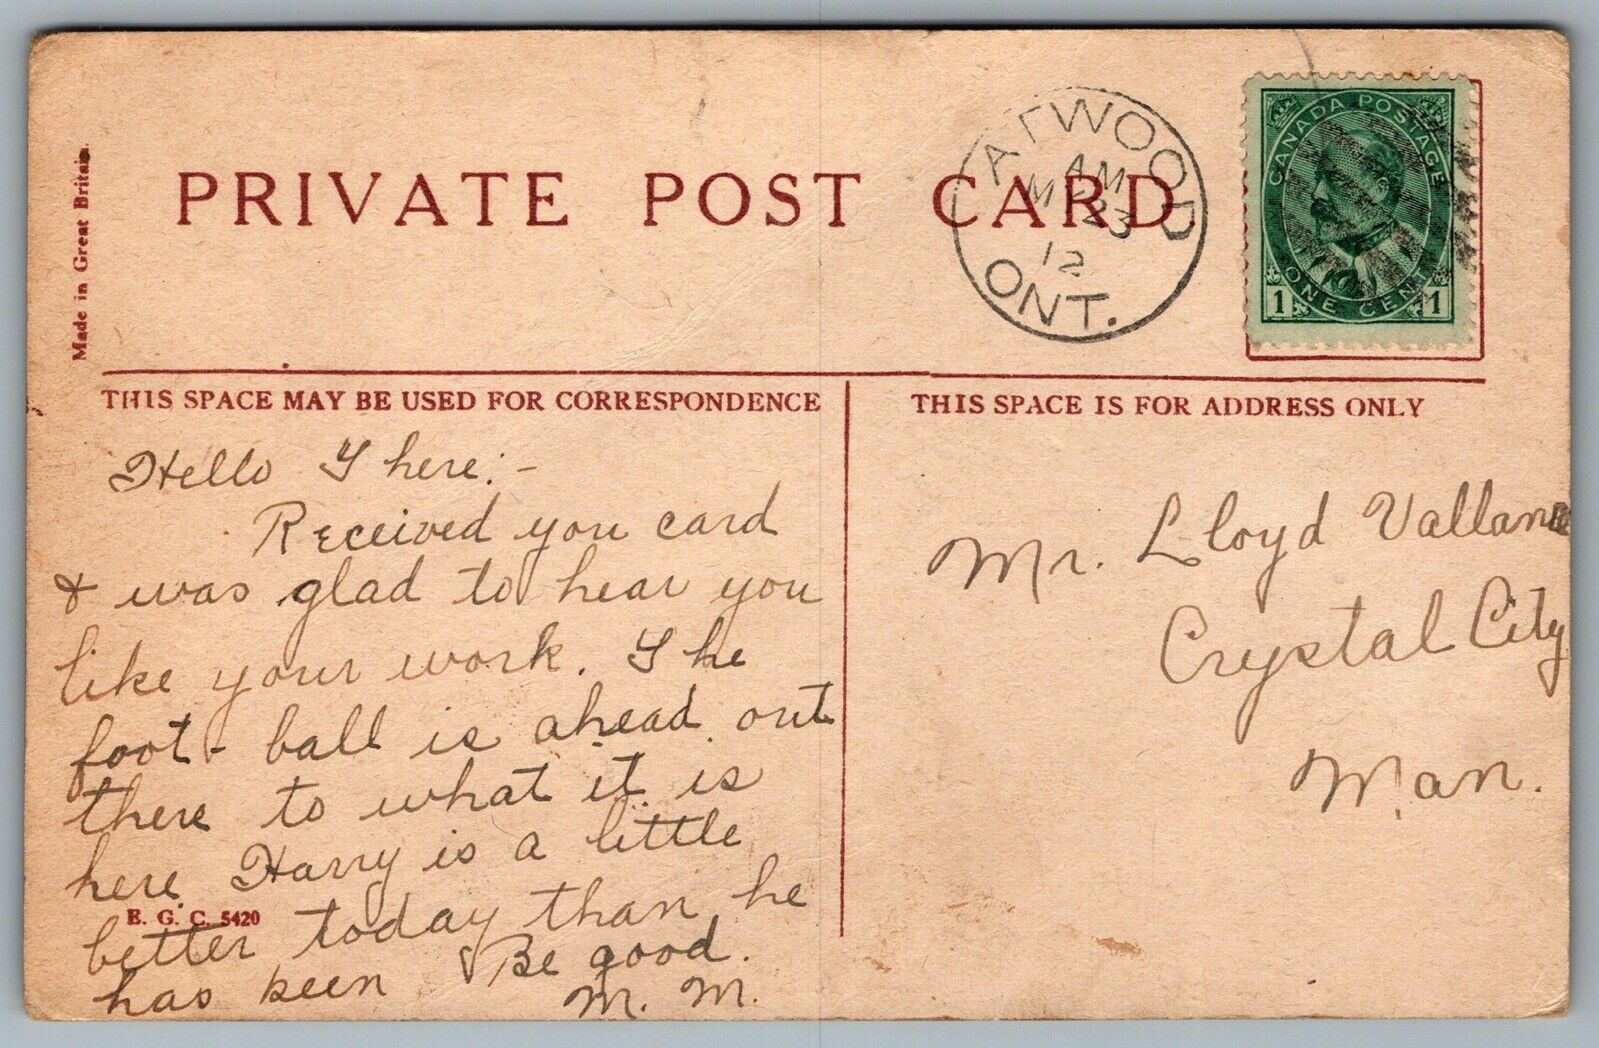 Made in Great Britain.
PRIVATE POST CARD
ATWOOD
AM
23
12
ONT.
CANADA POSTAGE
1 ONE CENT 1
THIS SPACE MAY BE USED FOR CORRESPONDENCE
THIS SPACE IS FOR ADDRESS ONLY
Hello There:-
Received you card
& was glad to hear you
like your work. The
foot-ball is ahead out
there to what it is
here. Harry is a little
better today than he
has been & Be good.
M. M.
E. G. C. 5420
Mr. Lloyd
Crystal City
Man.